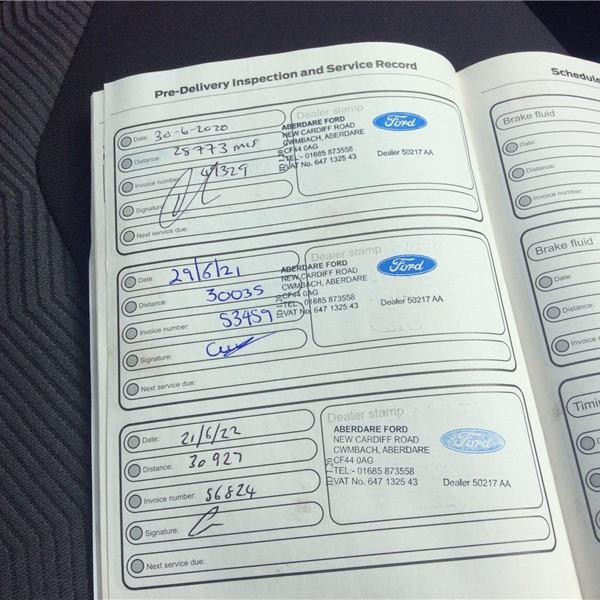 Pre-Delivery Inspection and Service Record
Date: 30-6-2020
Distance: 28773 MLS
Invoice number: 41329
Signature:
Next service due:
Dealer stamp
ABERDARE FORD
NEW CARDIFF ROAD
CWMBACH, ABERDARE
CF44 0AG
TEL:- 01685 873558
VAT No. 647 1325 43
Ford
Dealer 50217 AA
Date: 29/6/21
Distance: 30035
Invoice number: 53459
Signature:
Next service due:
Dealer stamp
ABERDARE FORD
NEW CARDIFF ROAD
CWMBACH, ABERDARE
CF44 0AG
TEL:- 01685 873558
VAT No. 647 1325 43
Ford
Dealer 50217 AA
Date: 21/6/22
Distance: 30927
Invoice number: 56824
Signature:
Next service due:
Dealer stamp
ABERDARE FORD
NEW CARDIFF ROAD
CWMBACH, ABERDARE
CF44 0AG
TEL:- 01685 873558
VAT No. 647 1325 43
Ford
Dealer 50217 AA
Schedule
Brake fluid
Date:
Distance:
Invoice number:
Brake fluid
Date:
Distance:
Invoice n
Timi